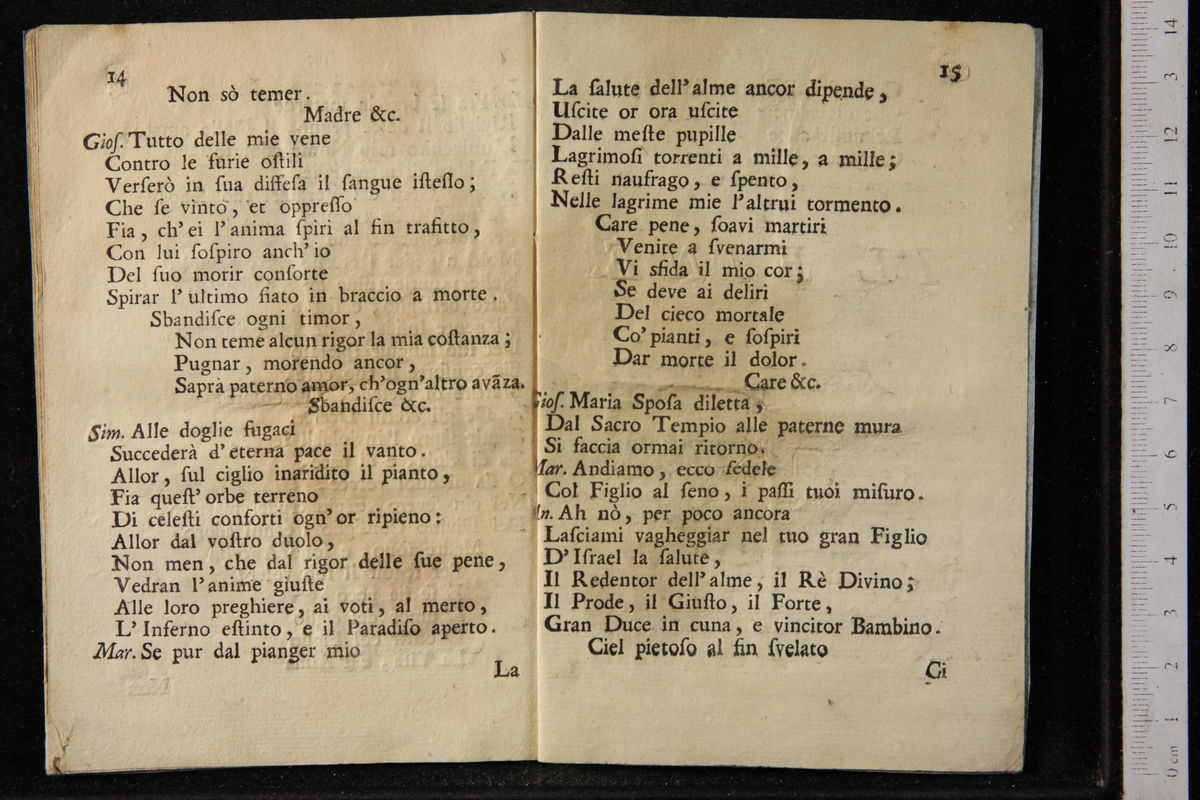 14
Non sò temer.
Madre &c.
Gioſ. Tutto delle mie vene
Contro le furie oſtili
Verſerò in ſua diffeſa il ſangue iſteſſo;
Che ſe vinto, et oppreſſo
Fia, ch'ei l'anima ſpiri al fin trafitto,
Con lui ſoſpiro anch'io
Del ſuo morir conſorte
Spirar l'ultimo fiato in braccio a morte.
Sbandiſce ogni timor,
Non teme alcun rigor la mia coſtanza;
Pugnar, morendo ancor,
Saprà paterno amor, ch'ogn'altro avãza.
Sbandiſce &c.
Sim. Alle doglie fugaci
Succederà d'eterna pace il vanto.
Allor, ſul ciglio inaridito il pianto,
Fia queſt'orbe terreno
Di celeſti conforti ogn'or ripieno:
Allor dal voſtro duolo,
Non men, che dal rigor delle ſue pene,
Vedran l'anime giuſte
Alle loro preghiere, ai voti, al merto,
L'Inferno eſtinto, e il Paradiſo aperto.
Mar. Se pur dal pianger mio
La
15
La ſalute dell'alme ancor dipende,
Uſcite or ora uſcite
Dalle meſte pupille
Lagrimoſi torrenti a mille, a mille;
Reſti naufrago, e ſpento,
Nelle lagrime mie l'altrui tormento.
Care pene, ſoavi martiri
Venite a ſvenarmi
Vi sfida il mio cor;
Se deve ai deliri
Del cieco mortale
Co'pianti, e ſoſpiri
Dar morte il dolor.
Care &c.
Gioſ. Maria Spoſa diletta,
Dal Sacro Tempio alle paterne mura
Si faccia ormai ritorno.
Mar. Andiamo, ecco fedele
Col Figlio al ſeno, i paſſi tuoi miſuro.
An. Ah nò, per poco ancora
Laſciami vagheggiar nel tuo gran Figlio
D'Iſrael la ſalute,
Il Redentor dell'alme, il Rè Divino;
Il Prode, il Giuſto, il Forte,
Gran Duce in cuna, e vincitor Bambino.
Ciel pietoſo al fin ſvelato
Ci
0 cm 1 2 3 4 5 6 7 8 9 10 11 12 3 14